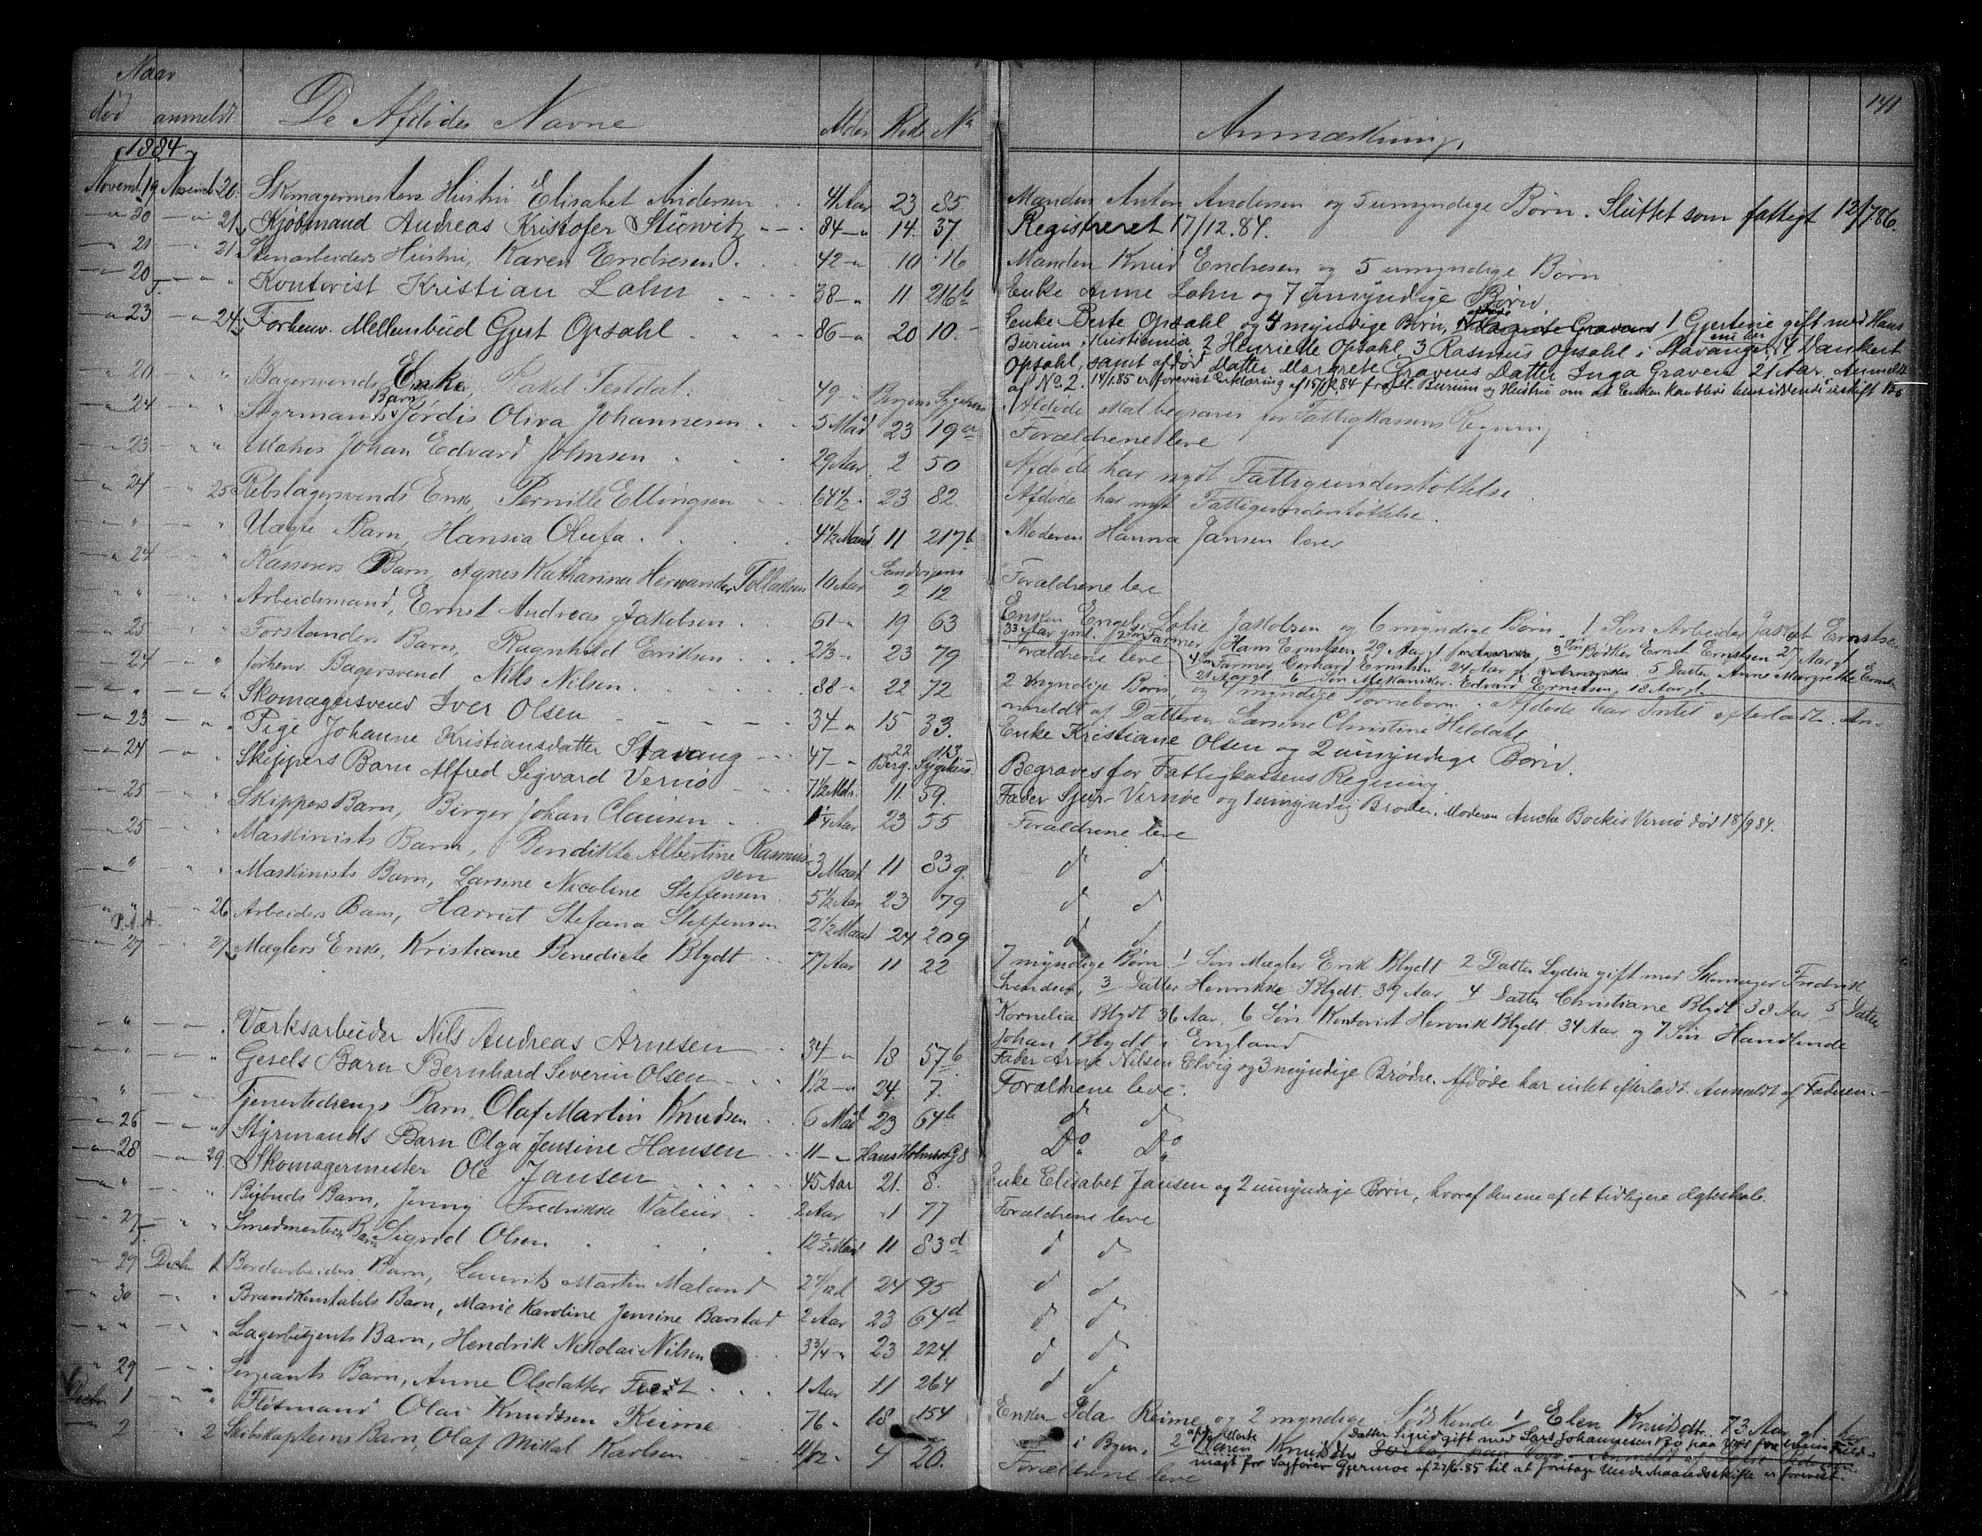 141
Naar
død anmeldt De Afdødes Navne Alder Rode No Anmærkning
1884
Novemb. 19 Novemb 20. Skomagermesters Hustru Elisabet Andersen 41 Aar 23 85 Manden Anton Andersen og 5 umyndige Børn. Sluttet som fattigt 12/786.
" 20 " 21 Kjøbmand Andreas Kristofer Stüwitz 84 " 14. 37 Registreret 17/12.84.
" 21 " 21 Stenarbeiders Hustru, Karen Endresen 42 " 10 16 Manden Knud Endresen og 5 umyndige Børn
" 20 " " Kontorist Kristian Lahn 38 " 11 216b Enke Anne Lahn og 7 umyndige Børn.
" 23 " 24 Forhenv. Mellembud Gjert Opsahl 86 " 20 10. Enke Berte Opsahl og 4 myndige Børn, 1 Gjertine gift med Hans
Burum i Kristiania 2 Henriette Opsahl 3 Rasmus Opsahl i Stavanger 4 Dankert
Opsahl, samt afdød Datter Margrete Gravens Datter Inga Graven 21 Aar. Anmeldt
af No. 2. 14/1.85 er forevist Erklæring af 15/12.84 fra H. Burum og Hustru om at Enken kan blive hensiddende i uskift Bo
" 20 " " Bagersvends Enke, Testdal 49 " Bergens Sygehus Afdøde skal begraves for Fattigkassens Regning
" 24 " " Styrmands Barn Hjördis Oliva Johannesen 5 Maad 23 19a Forældrene leve
" 23 " " Matros Johan Edvard Johnsen 29 Aar 2 50 Afdøde har nydt Fattigunderstøttelse
" 24 " 25 Rebslagersvends Enke, Pernille Ellingsen 64½ " 23 82. Afdøde har nydt Fattigunderstøttelse.
" " " " Uægte Barn, Hansia Olufa 4½ Maad 11 217b Moderen Hanna Jansen lever
" 24 " " Kasserers Barn, Agnes Katharina Hermander Tollaksen 10 Aar Sandvigens 2 12 Forældrene leve
" " " " Arbeidsmand, Ernst Andreas Jakobsen 61 " 19 63 Enken Engel Jakobsen og 6 myndige Børn. 1 Søn Arbeider Jakob Ernstsen
33 Aar gml. 2 Søn Farmer Hans Ernstsen 29 Aar gl 3 Søn Bødker Ernst Ernstsen 27 Aar gl
" 25 " " Forstanders Barn, Ragnhild Eriksen 2⅓ " 23 79 Forældrene leve
4 Søn Farmer Gerhard Ernstsen 24 Aar gl 5 Datter Anne Margrethe Ernstsen
21 Aar gl 6 Søn Mekaniker Edvard Ernstsen, 18 Aar gl
" 24 " " forhenv. Bagersvend Nils Nilsen 88 " 22 72 2 myndige Børn og myndige Børnebørn. Afdøde har Intet efterladt. An-
meldt af Datteren Larsine Christine Heldahl
" " " " Skomagersvend Iver Olsen 34 " 15 33. Enke Kristiane Olsen og 2 umyndige Børn.
" 23 " " Pige Johanne Kristiansdatter Stavang 47 " Berg. Sygehus. Begraves for Fattigkassens Regning.
" 24 " " Skippers Barn Alfred Sigvard Vernø 7½ Mdr. 11 59. Fader Vernøe og 1 umyndig Broder. Moderen Anche Bockis Vernø død 18/9 84.
" 25 " " Skippers Barn, Birger Johan Clausen 1¼ Aar 23 55 Forældrene leve
" 25 " " Maskinists Barn, Bendikte Albertine Rasmussen 3 Maad 11 83g. d d
" " " " Maskinists Barn, Larsine Nicoline Steffensen 5½ Aar 23 79 d d
" " " 26 Arbeiders Barn, Harriet Stefana Steffensen 2½ Maad 24 209 d d
" 27 " 27 Mæglers Enke, Kristiane Benedicte Blydt 77 Aar 11 22 7 myndige Børn 1 Søn Mægler Erik Blydt 2 Datter Lydia gift med Skomager Fredrik
Svendsen, 3 Datter Henrikke Blydt. 39 Aar 4 Datter Christiane Blydt 38 Aar 5 Datter
Kornelia Blydt 36 Aar. 6 Søn Kontorist Henrik Blydt 34 Aar og 7 Søn Handlende
Johan Blydt i England
" " " " Værksarbeider Nils Andreas Arnesen 34 " 18 57b Fader Arne Nilsen Elvig og 3 myndige Brødre. Afdøde har intet efterladt. Anmeldt af Faderen.
" " " " Gesels Barn Bernhard Severin Olsen 1½ " 24. 7. Forældrene leve.
" " " " Tjenestedrengs Barn, Olaf Martin Knudsen 6 Maad 23 64b d d
" 26 " " Styrmands Barn Olga Jensine Hansen 11 " Hans Holmboe G 8 Do Do
" 28 " 29. Skomagermester Ole Jansen 45 Aar 21. 8. Enke Elisabet Jansen og 2 umyndige Børn, hvoraf den ene af et tidligere Ægteskab.
" " " " Bybuds Barn, Jenny Fredrikke Valeur 2 Aar 1 77 Forældrene leve
" 27 " " Smedmesters Barn Sigrid Olsen 12½ Maad 11 83d d d
" 29 Decbr 1 Bordarbeiders Barn, Laurits Martin Maland 24 95 d d
" 30 " " Brandkonstabels Barn, Marie Karoline Jensine Barstad 2 Aar 23 64d d d
" " " " Lagerbetjents Barn, Hendrik Nikolai Nilsen 3¾ " 23 224. d d
" 29 " " Sergeants Barn, Anne Olsdatter 1 Aar 11 264 d d
Decbr 1 " " Flötmand Olai Knudtsen Reime 76 " 18 154 Enken Ida Reime og 2 myndige Sødskende 1/ Elen Knudsdtr. 73 Aar gl. her
i Byen, 2 afdøde Karen Knudsdtr Datter Sigrid gift med Lars Johannesen Bø paa Voss
magt for Sagfører Gjermoe af 27/6.85 til at foretage er forevist.
" 2 " 2 Skibskapteins Barn, Olaf Mikal Karlsen 4 20. Forældrene leve